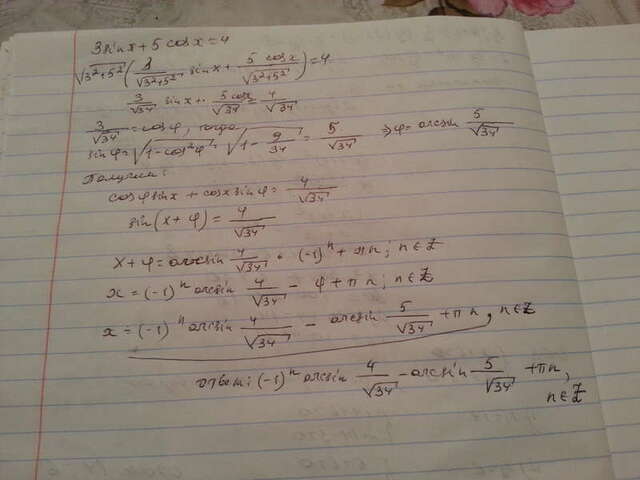 3sinx+5 cosx=4
√3²+5² (3/√3²+5² sinx + 5 cosx/√3²+5²)=4
3/√34 sinx+ 5cosx/√34 = 4/√34
3/√34 = cosφ, тогда
sinφ=√1-cos²φ = √1-9/34 = 5/√34 ⇒φ=arcsin 5/√34
Получим:
cosφsinx + cosxsinφ= 4/√34
sin(x+φ) = 4/√34
x+φ=arcsin 4/√34 · (-1)ⁿ + πn; n∈Z
x = (-1)ⁿ arcsin 4/√34 - φ+πn; n∈Z
x = (-1)ⁿ arcsin 4/√34 - arcsin 5/√34 +πn, n∈Z
ответ: (-1)ⁿ arcsin 4/√34 - arcsin 5/√34 +πn,
n∈Z